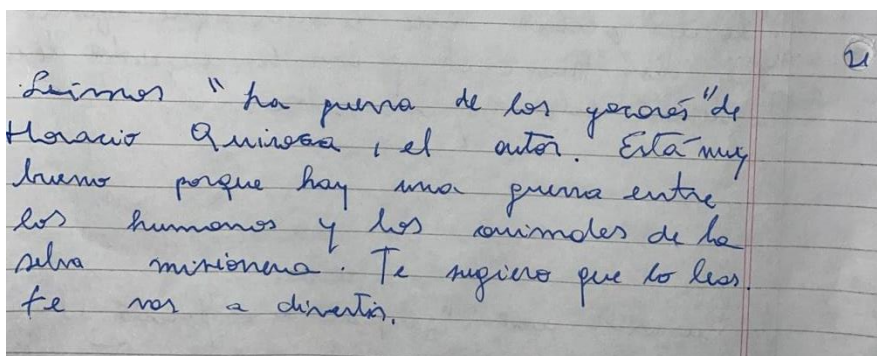 21
Leimos "La guerra de los yacarés" de
Horacio Quiroga, el autor. Está muy
bueno porque hay una guerra entre
los humanos y los animales de la
selva misionera. Te sugiero que lo leas.
te vas a divertir.